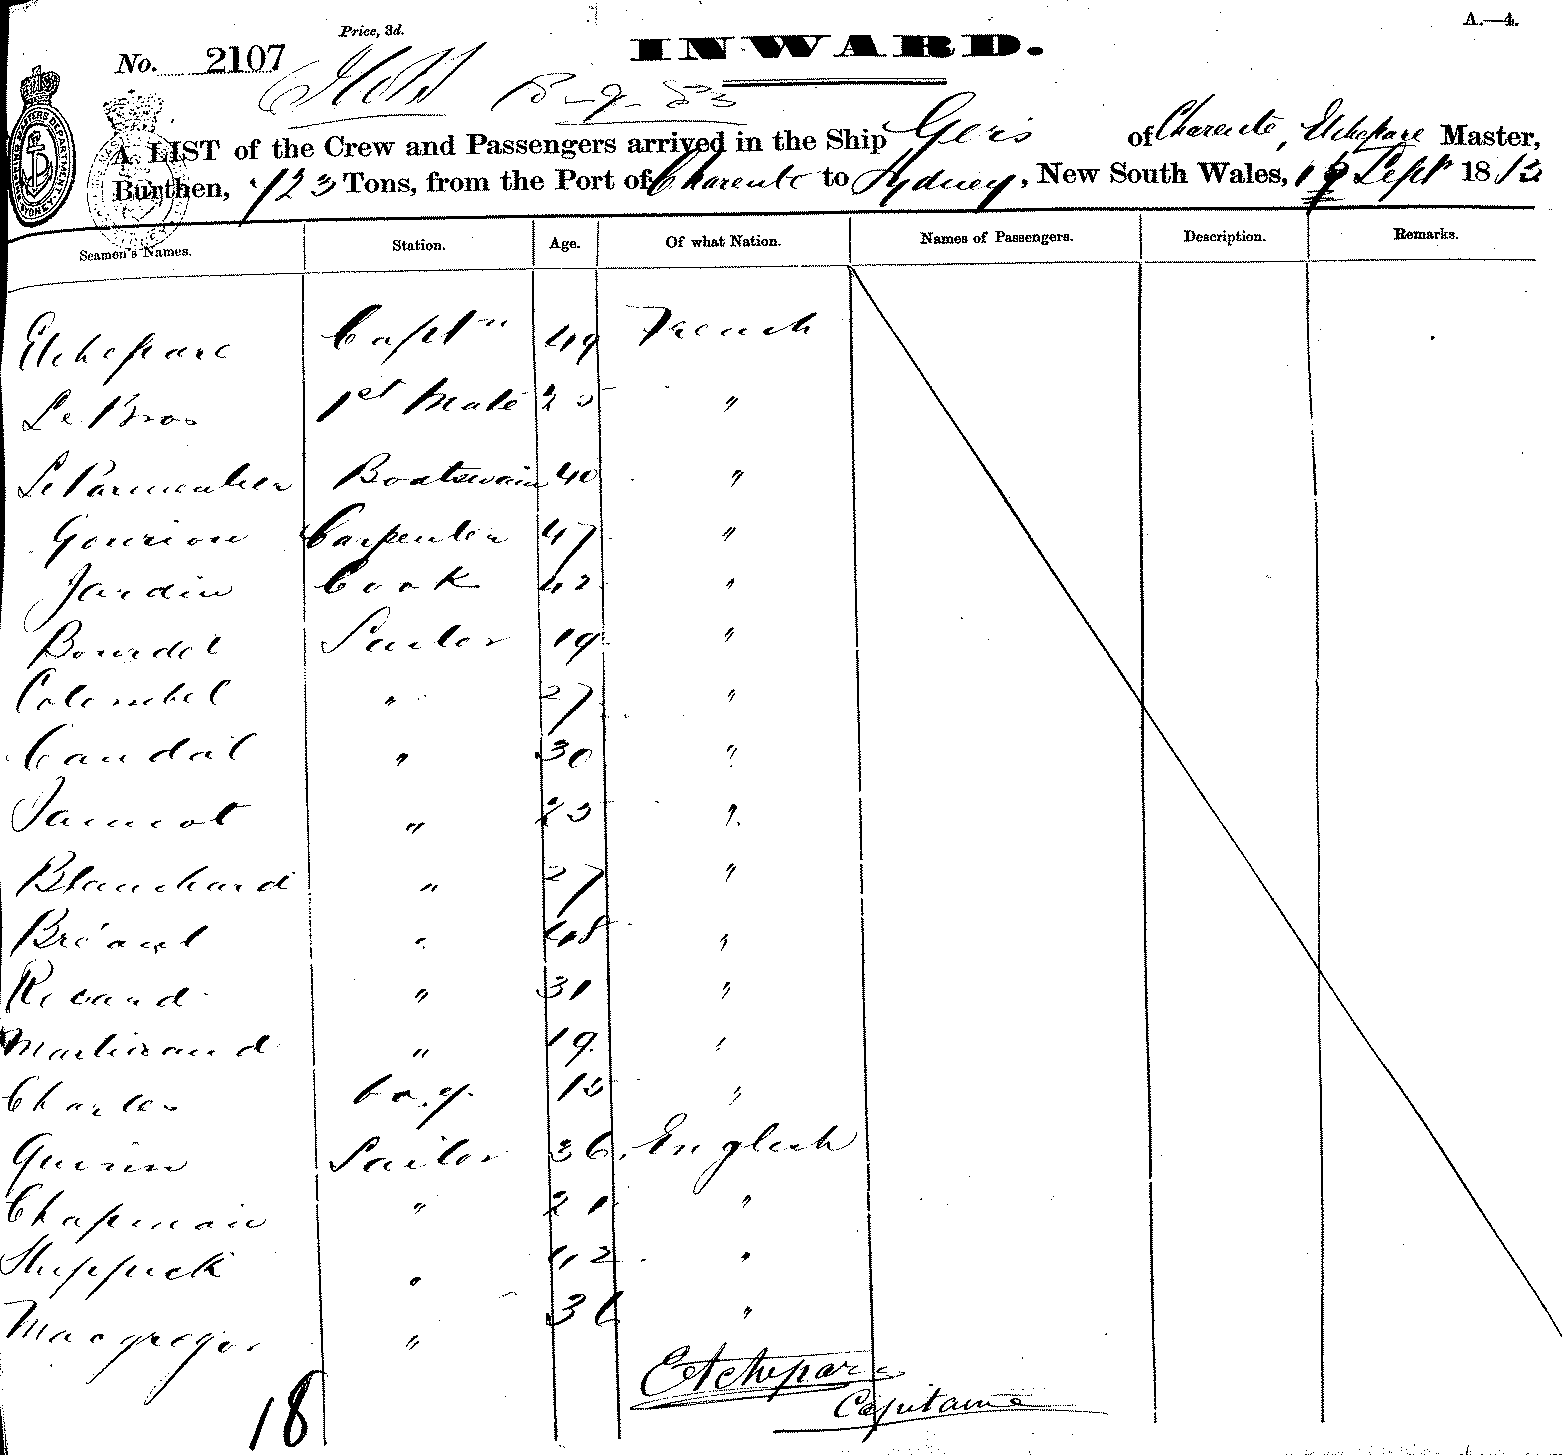 A.—4.
Price, 3d.
No. 2107
INWARD.
A LIST of the Crew and Passengers arrived in the Ship Gers of Charente, Etchepare Master,
Burthen, 723 Tons, from the Port of Charente to Sydney, New South Wales, Sept 18
Seamen's Names. Station. Age. Of what Nation. Names of Passengers. Description. Remarks.
Etchepare Captn 49 French
Le Bros 1st Mate 25 "
Le Parmentier Boatswain 40 "
Gourion Carpenter 47 "
Jardin Cook 42 "
Bourdel Sailor 19 "
Colombel " 27 "
Caudal " 30 "
" 25 "
Blanchard " 27 "
Bréaut " 48 "
" 31 "
" 19 "
Charles boy "
Quinn Sailor 36 English
Chapman " 21 "
" 42 "
Macgregor " 36 "
18
Etchepare
Capitaine